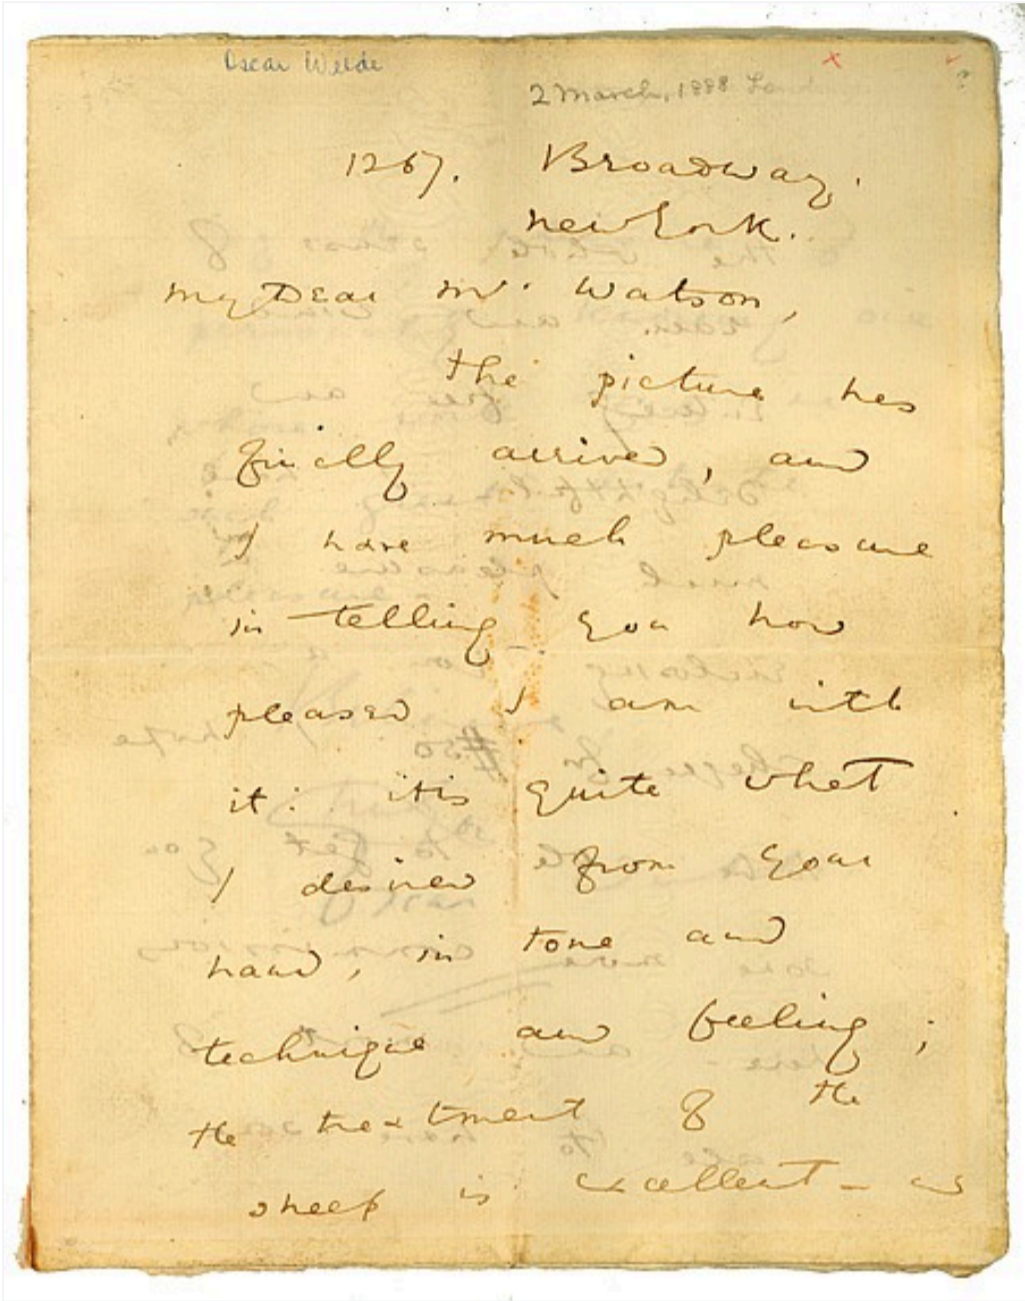 Oscar Wilde
2 March, 1888
1267. Broadway.
New York.
My Dear Mr. Watson,
The picture has
finally arrived, and
I have much pleasure
in telling you how
pleased I am with
it: it is quite what
I desired from your
hand, in tone and
technique and feeling;
the treatment of the
sheep is excellent - as